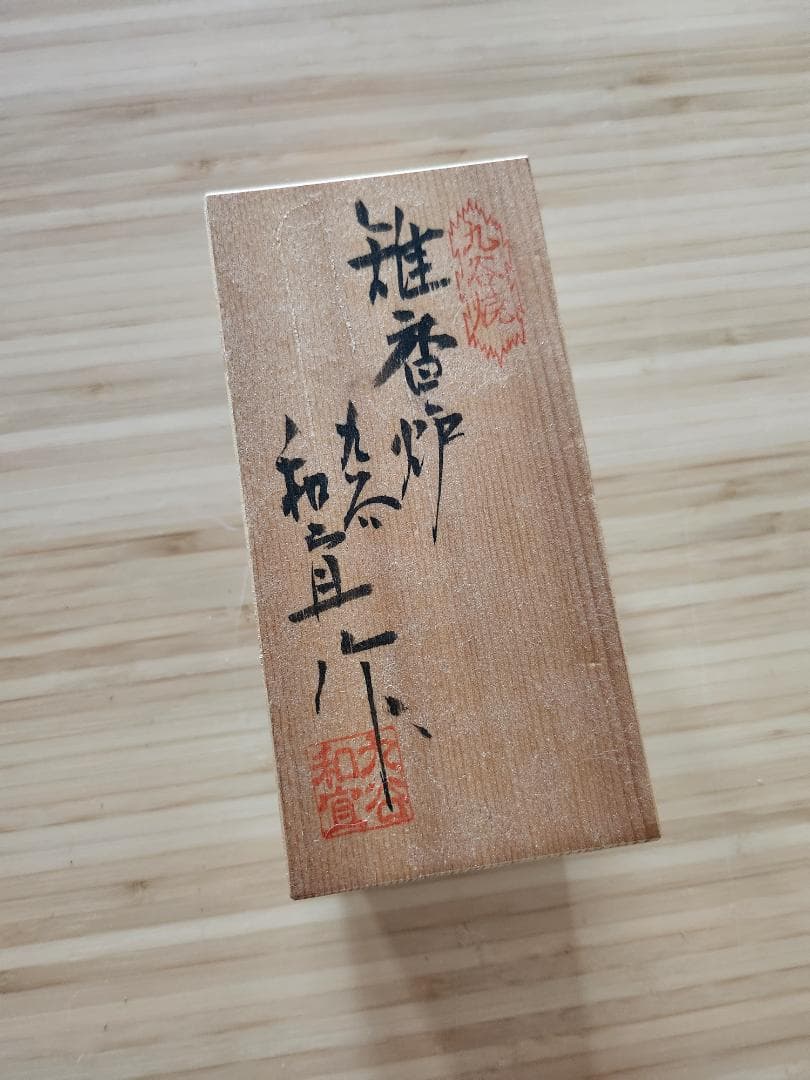 九谷焼
雉香炉
九谷
和宜作
九谷
和宜